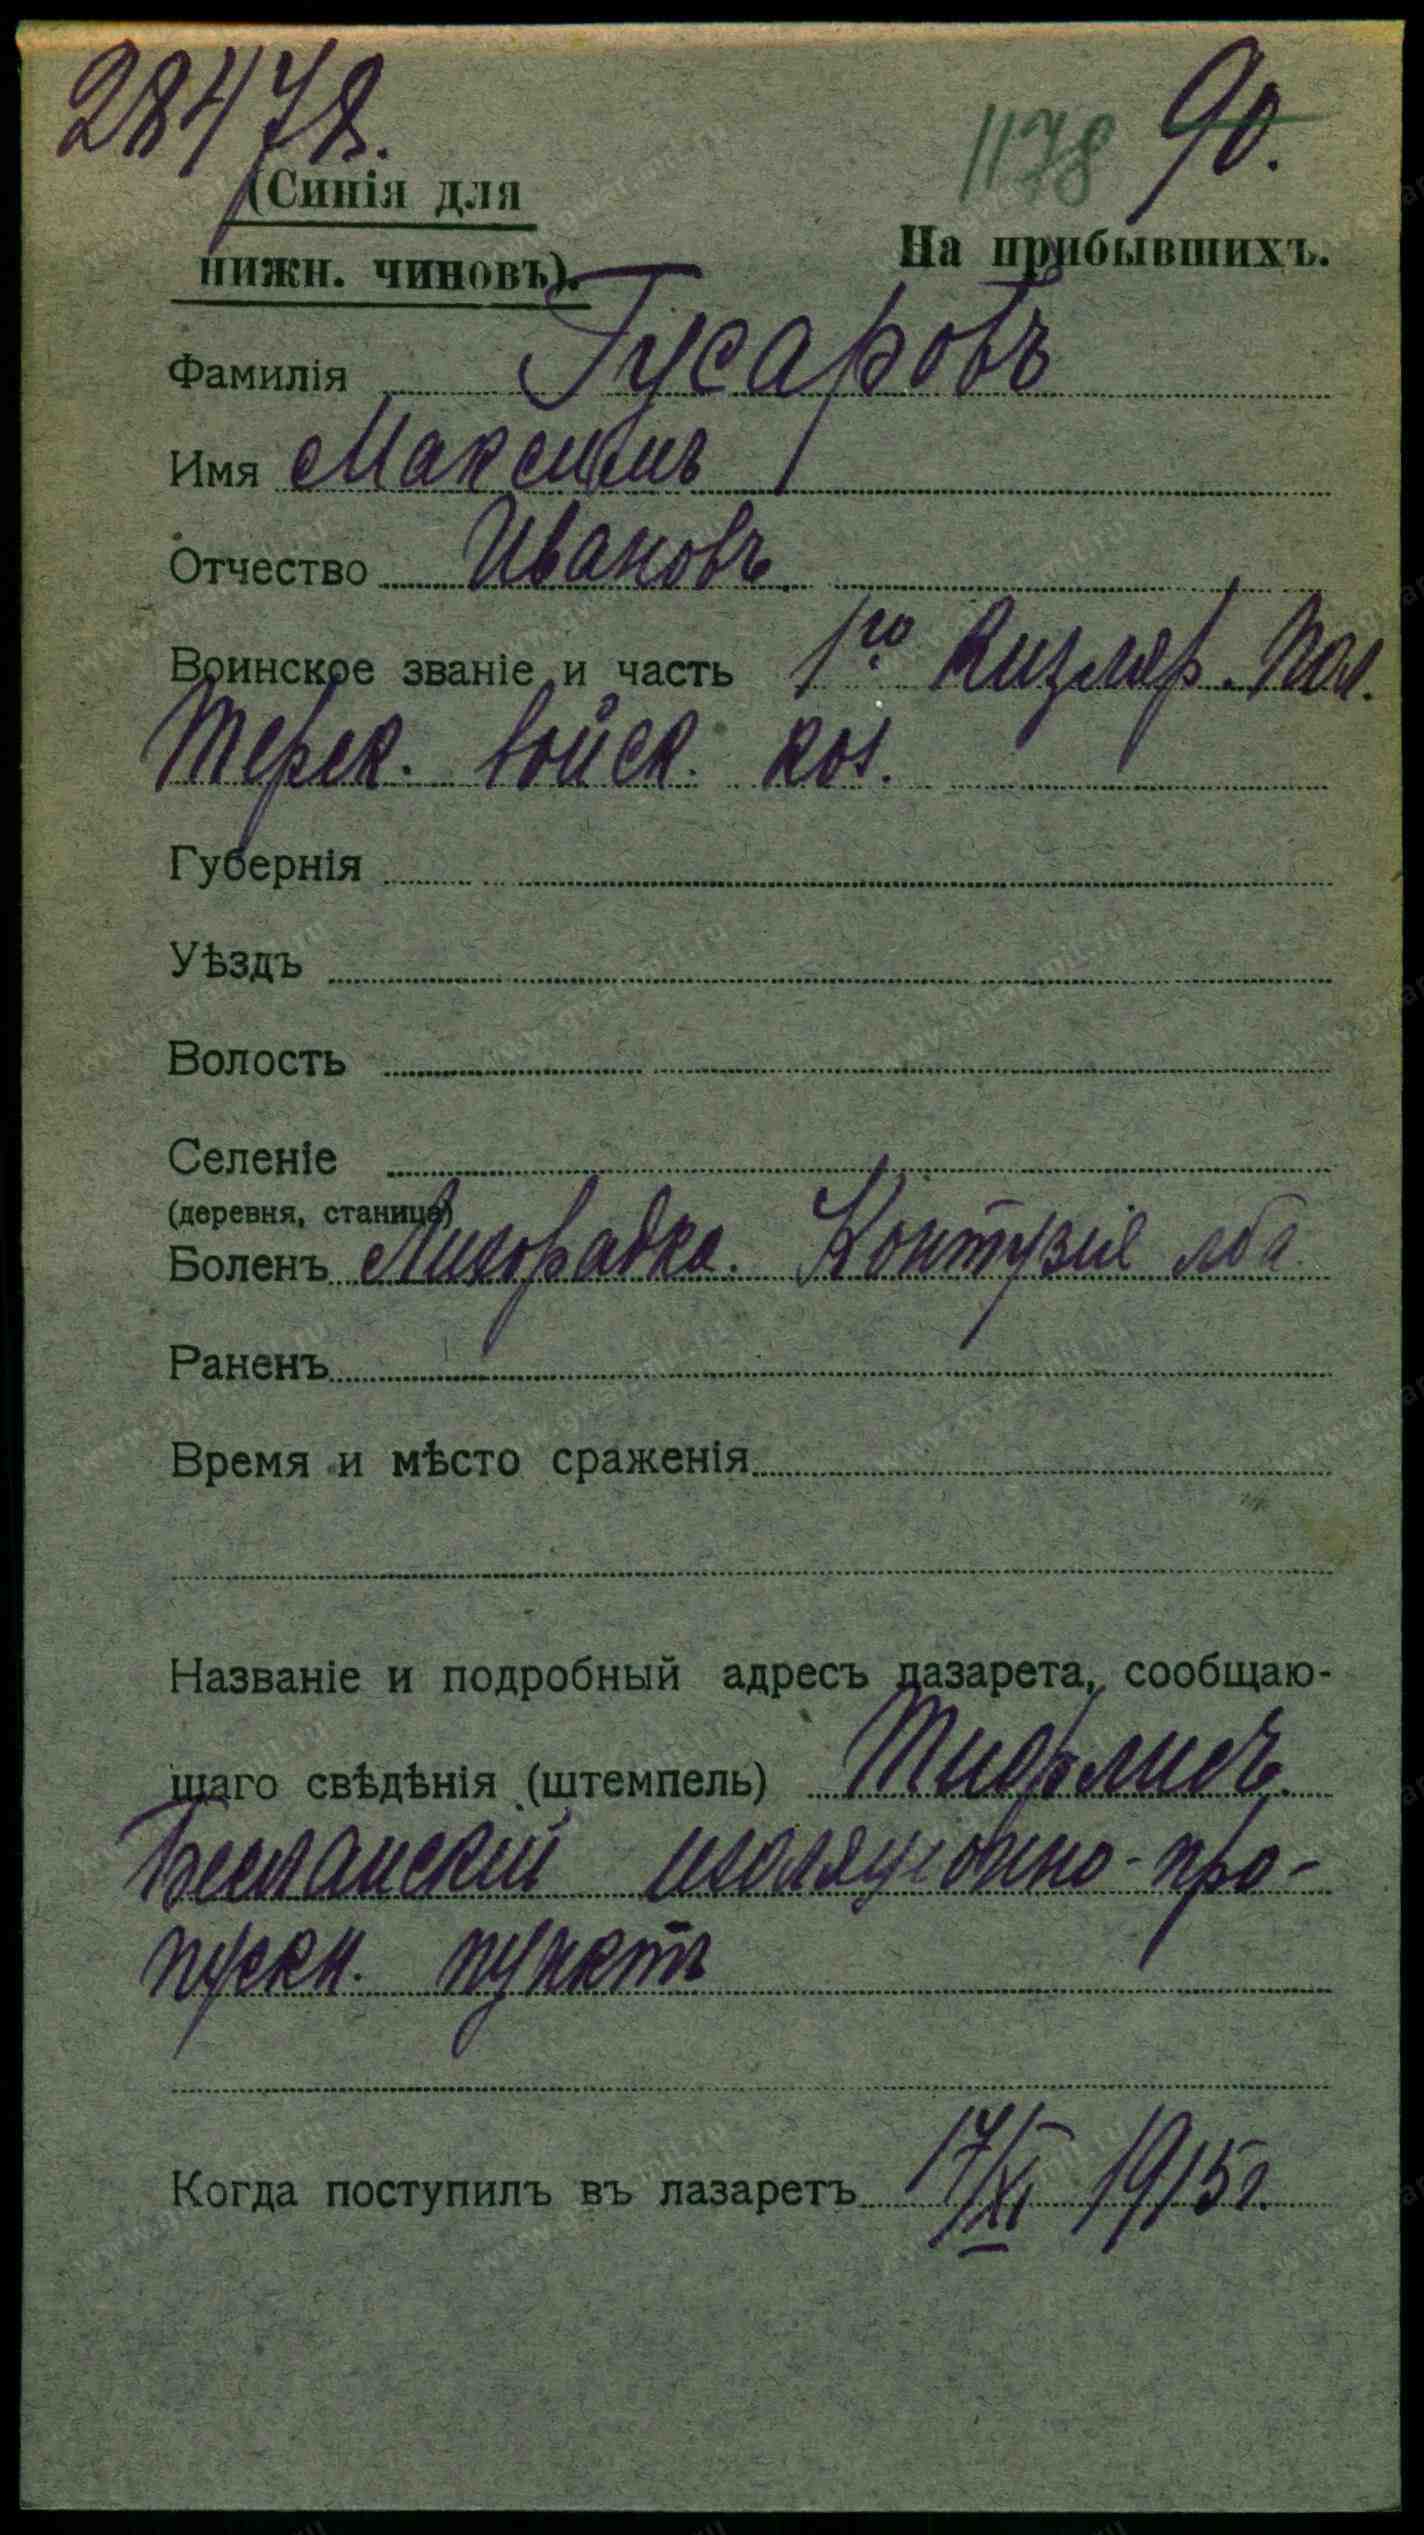 28478.
1178 90.
(Синія для
нижн. чиновъ).
На прибывшихъ.
Фамилія Гусаровъ
Имя Максимъ
Отчество Ивановъ
Воинское званіе и часть 1го Кизляр. Пол.
Терек. войск. каз.
Губернія
Уѣздъ
Волость
Селеніе
(деревня, станица)
Боленъ Лихорадка. Контузія лба
Раненъ
Время и мѣсто сраженія
Названіе и подробный адресъ лазарета, сообщаю-
щаго свѣдѣнія (штемпель) Тифлисъ.
Бесланскій изоляціонно-про-
пускн. пунктъ
Когда поступилъ въ лазаретъ 17/XI 1915г.